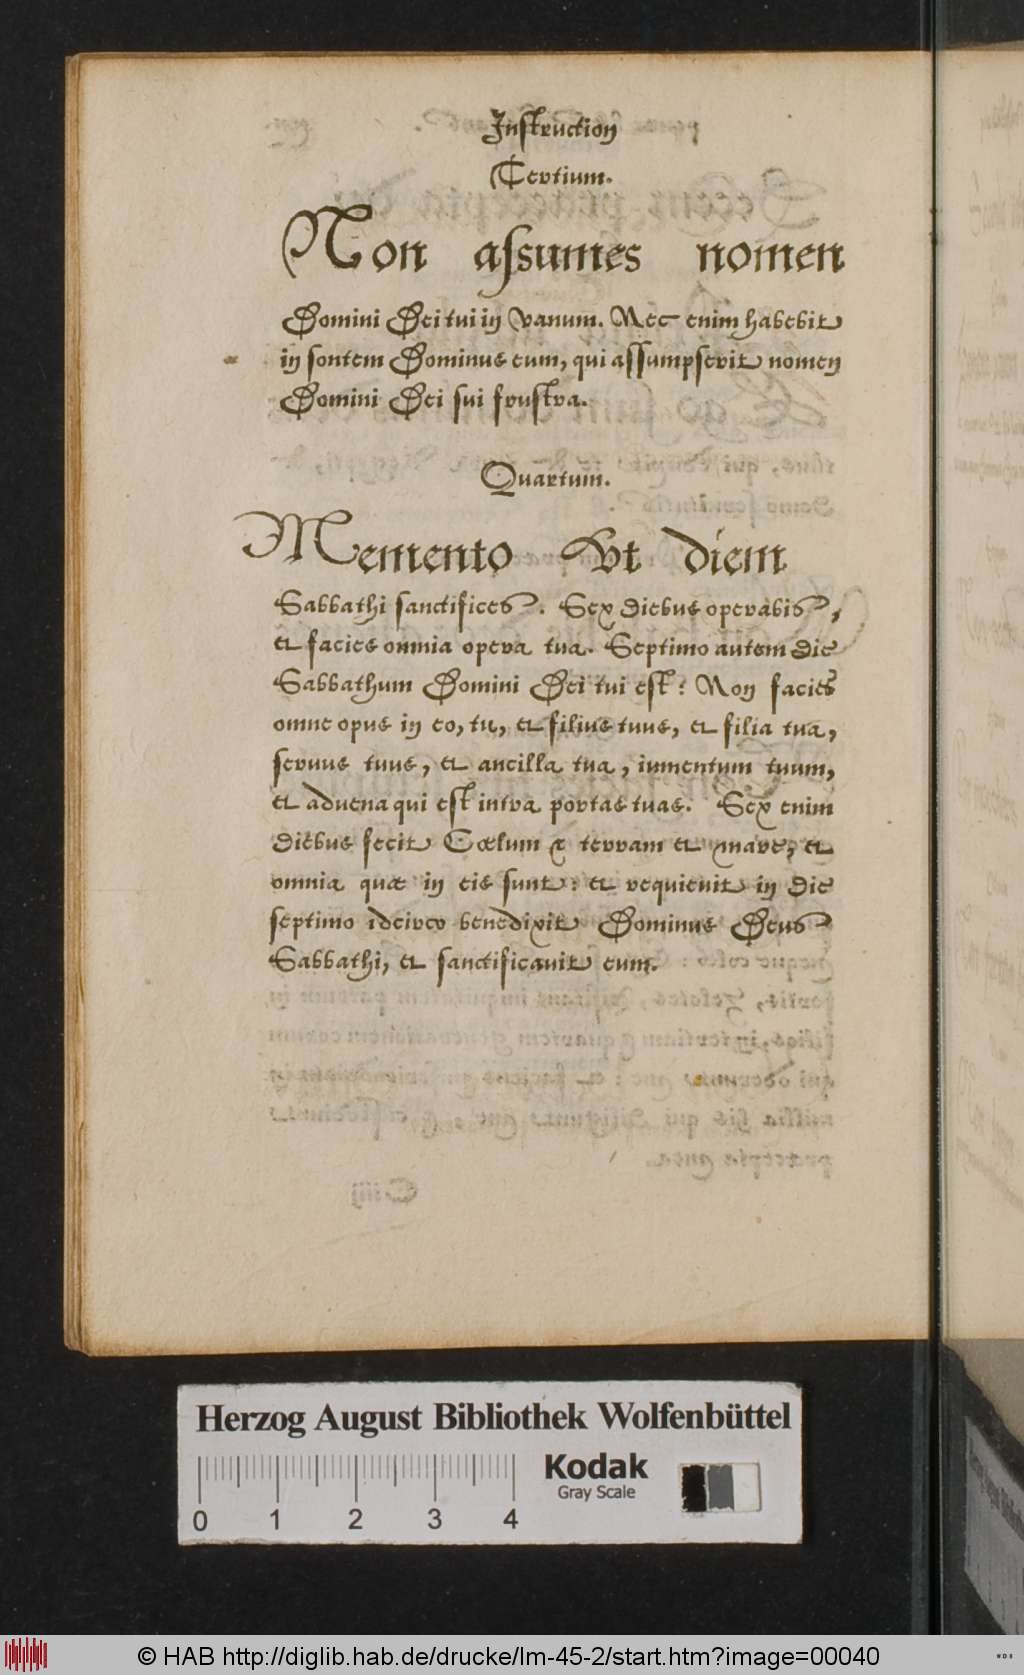 Instruction
Tertium.
Non assumes nomen
Domini Dei tui in vanum. Nec enim habebit
in sontem Dominus eum, qui assumpserit nomen
Domini Dei sui frustra.
Quartum.
Memento vt diem
Sabbathi sanctifices. Sex diebus operabis,
et facies omnia opera tua. Septimo autem die
Sabbathum Domini Dei tui est: Non facies
omne opus in eo, tu, et filius tuus, et filia tua,
seruus tuus, et ancilla tua, iumentum tuum,
et aduena qui est intra portas tuas. Sex enim
diebus fecit Cœlum & terram et mare, et
omnia quæ in eis sunt: et requieuit in die
septimo idcirco benedixit Dominus Deus
Sabbathi, et sanctificauit eum.
Herzog August Bibliothek Wolfenbüttel
Kodak
Gray Scale
0 1 2 3 4
© HAB http://diglib.hab.de/drucke/lm-45-2/start.htm?image=00040